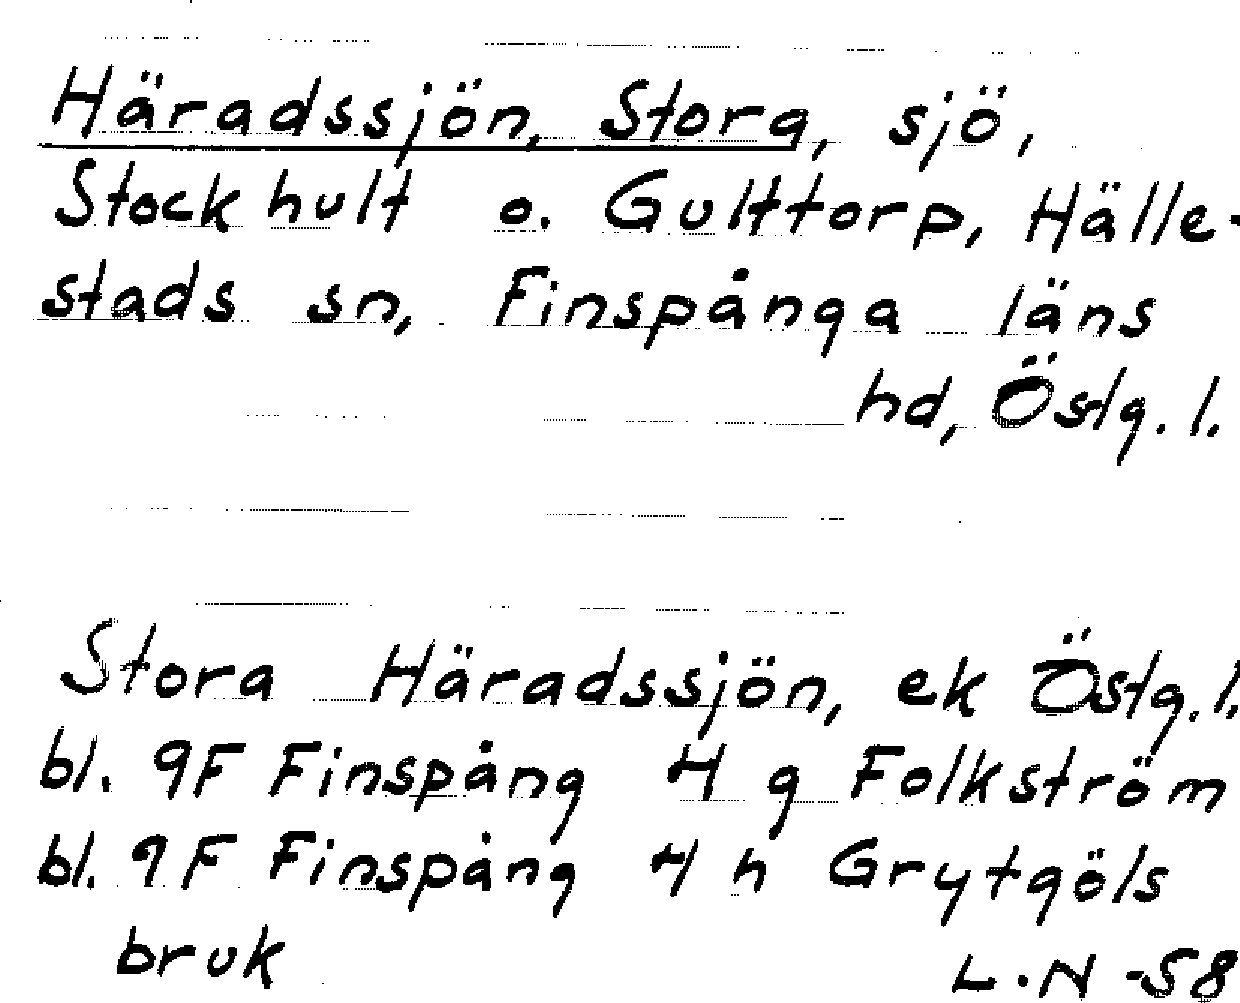 Häradssjön, Stora, sjö,
Stockhult o. Gulttorp, Hälle-
stads sn, Finspånga läns
hd, Östg. l.
Stora Häradssjön, ek Östg. l.
bl. 9F Finspång 4 g Folkström
bl. 9F Finspång 4 h Grytgöls
bruk
L.N -58